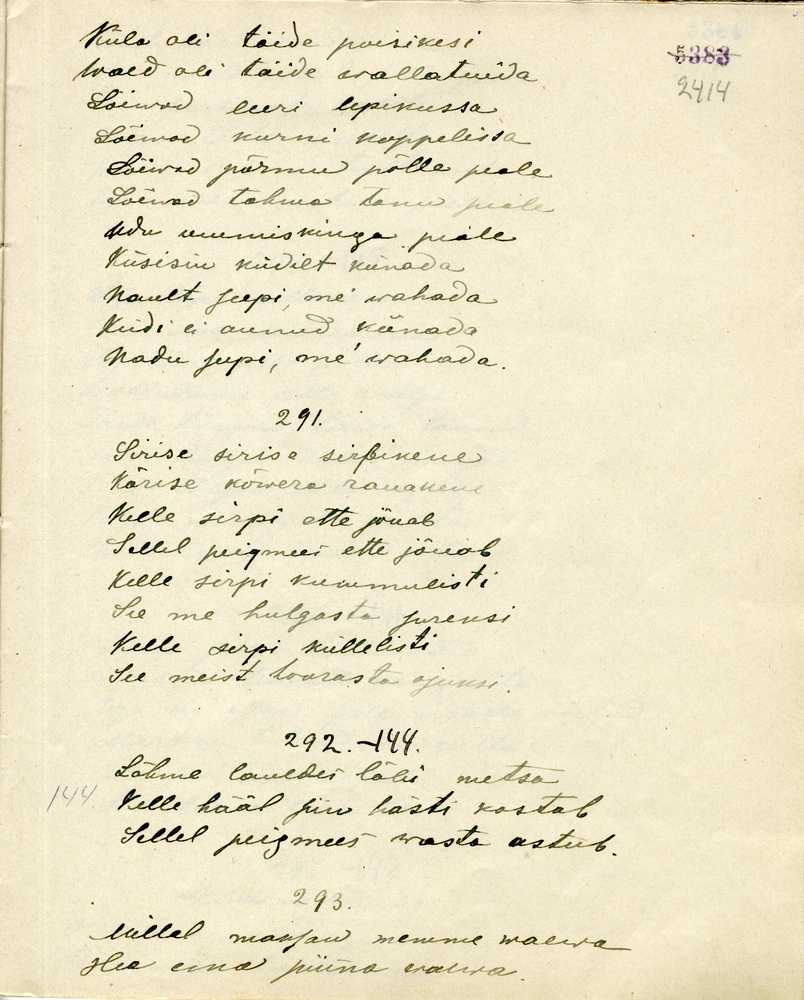 5383
2414
Küla oli täide poisikesi
Wald oli täide wallatuida
Lõiwad leeri lepikussa
Lõiwad kurni koppelissa
Lõiwad põrmu põlle peale
Lõiwad tahma tanu peale
Udu uumiskinga peale
Küsisin küdilt künada
Nault seepi, me wahada
Küdi ei annud künada
Nadu seepi, me wahada.
291.
Sirise sirise sirbikene
Kärise kõwera rauakene
Kelle sirpi ette jõuab
Sellel peigmees ette jõuab
Kelle sirpi kummulisti
See me hulgasta sureksi
Kelle sirpi küllelisti
See meist toorasta ajuksi.
292. -144.
144.
Lähme lauldes läbi metsa
Kelle hääl siin hästi kostab
Sellel peigmees wasta astub.
293.
Millal maksan memme waewa
Hea ema piina waewa.